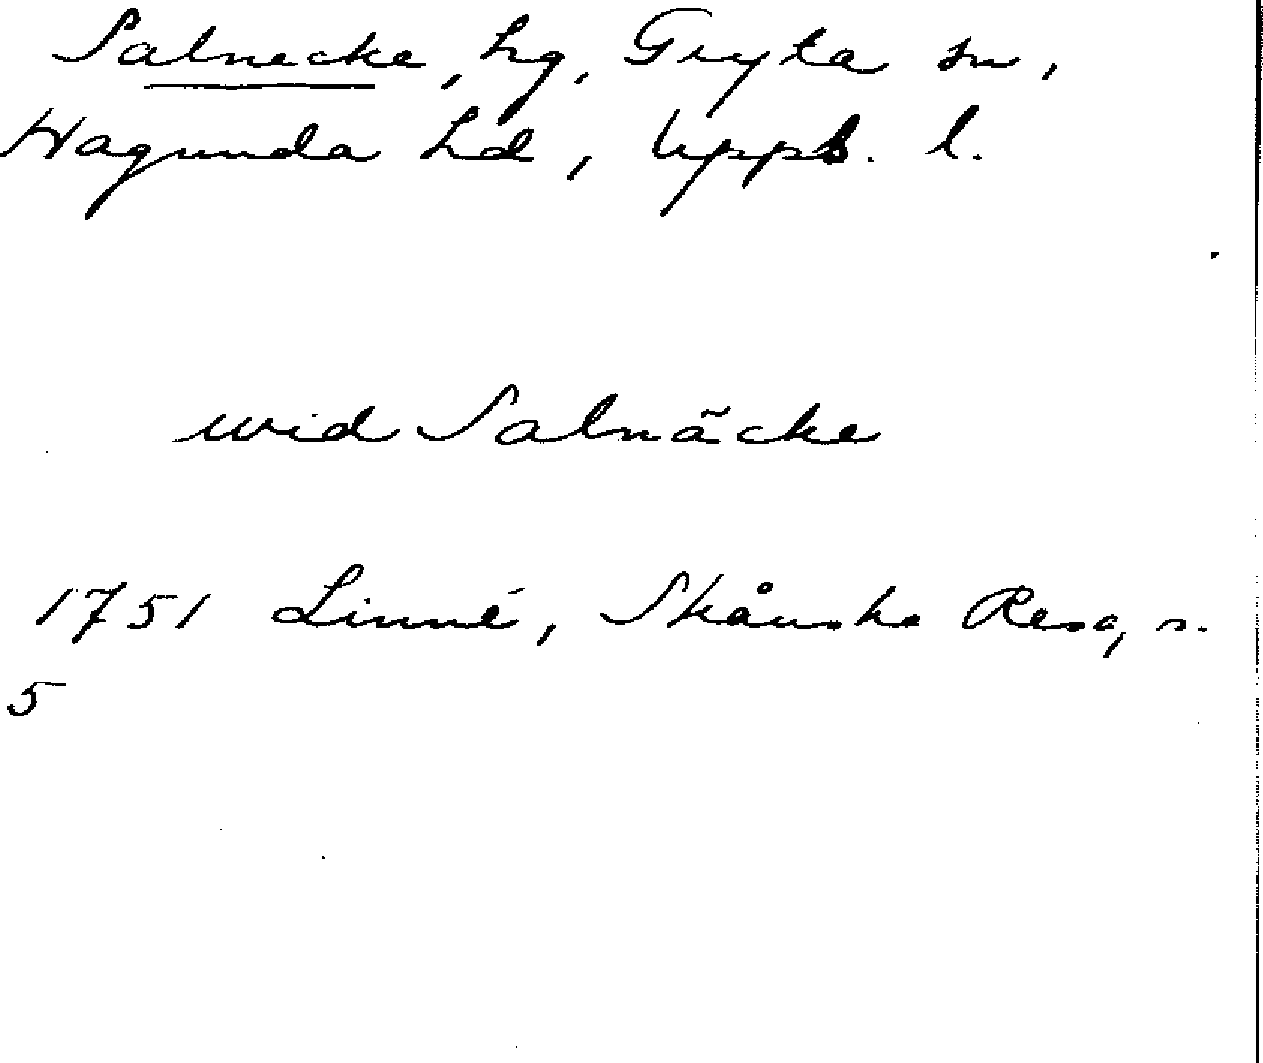 Salnecke, hg, Gryta sn,
Hagunda hd, Upps. l.
wid Salnäcke
1751 Linné, Skånska Resa, s.
5